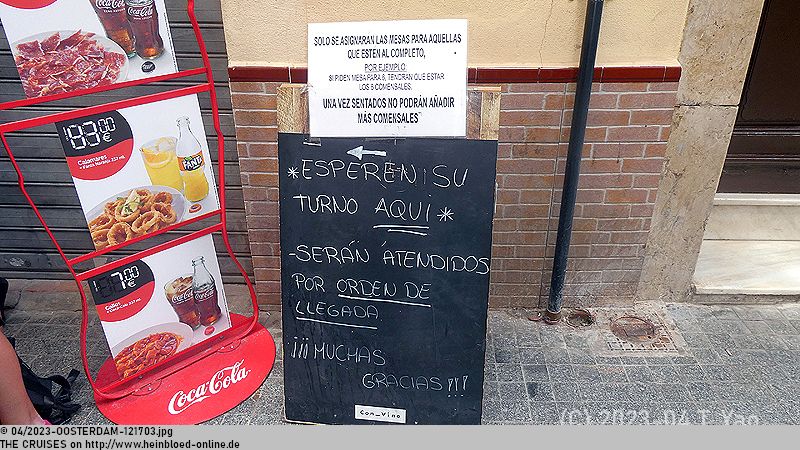 Coca-Cola
SOLO SE ASIGNARAN LAS MESAS PARA AQUELLAS
QUE ESTEN AL COMPLETO,
POR EJEMPLO:
SI PIDEN MESA PARA 6, TENDRAN QUE ESTAR
LOS 6 COMENSALES.
UNA VEZ SENTADOS NO PODRÁN AÑADIR
MÁS COMENSALES
*ESPEREN SU
TURNO AQUÍ*
-SERÁN ATENDIDOS
POR ORDEN DE
LLEGADA.
¡¡¡MUCHAS
GRACIAS!!!
Con_Vino
00
€
Calamares
FANTA
7,00
€
Callos
Coca-Cola
Coca-Cola
(C) 2023-04 T.Yan
© 04/2023-OOSTERDAM-121703.jpg
THE CRUISES on http://www.heinbloed-online.de